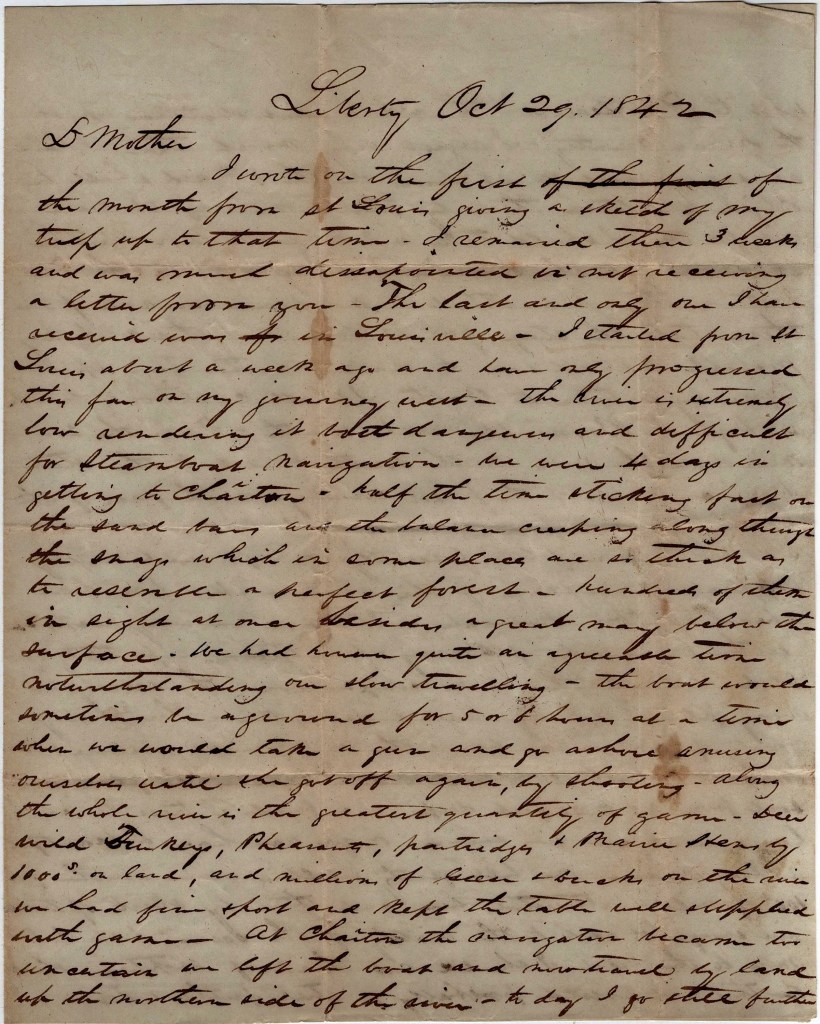 Liberty Oct 29. 1842
D Mother
I wrote on the first of the first of
the month from St Louis giving a sketch of my
trip up to that time - I remained there 3 weeks
and was much dissapointed in not receiving
a letter from you - The last and only one I have
received was in Louisville - I started from St
Louis about a week ago and have only progressed
this far on my journey west - the river is extremely
low rendering it both dangerous and difficult
for Steamboat navigation - we were 4 days in
getting to Chariton - half the time sticking fast on
the sand bars and the balance creeping along through
the snags which in some places are so thick as
to resemble a perfect forest - hundreds of them
in sight at once besides a great many below the
surface - We had however quite an agreeable time
notwithstanding our slow travelling - the boat would
sometimes be aground for 5 or 6 hours at a time
when we would take a gun and go ashore amusing
ourselves until she got off again, by shooting - along
the whole river is the greatest quantity of game - Deer
wild Turkeys, Pheasants, partridges & Prairie Hens by
1000s. on land, and millions of Geese & ducks on the river
we had fine sport and kept the table well supplied
with game - At Chariton the navigation became too
uncertain we left the boat and now travel by land
up the northern side of the river - to day I go still further